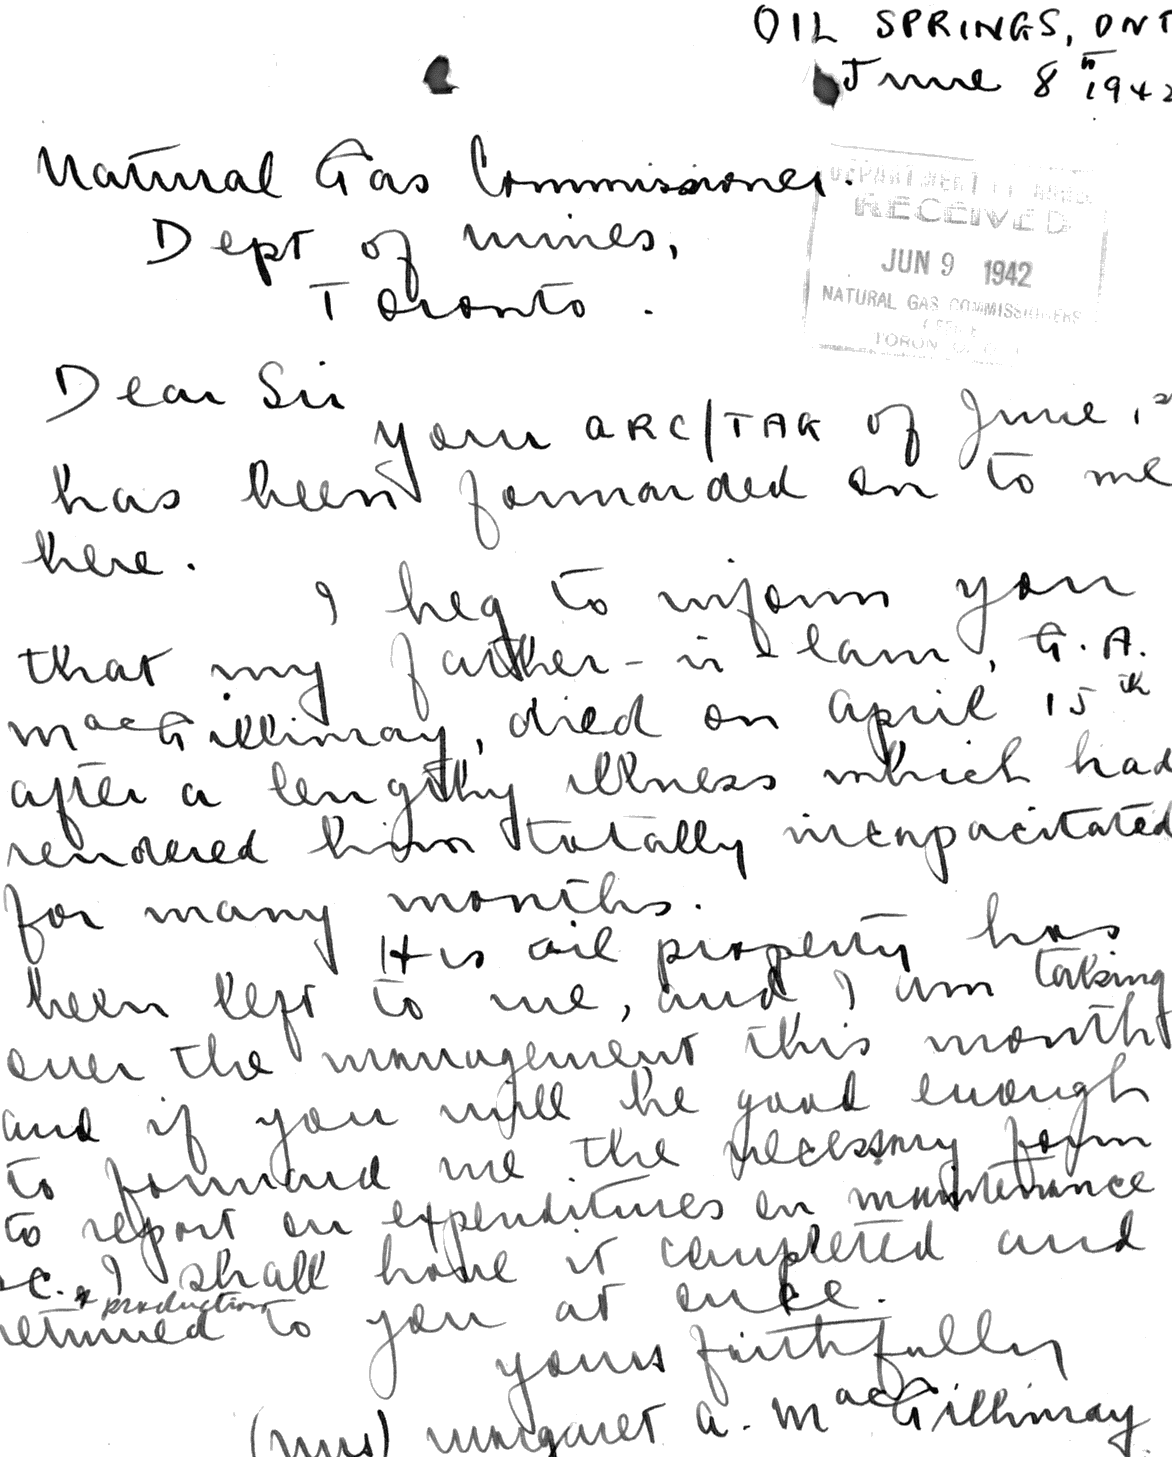 OIL SPRINGS, ONT
June 8th 1942
Natural Gas Commissioner.
Dept of mines,
Toronto.
DEPARTMENT OF MINES
RECEIVED
JUN 9 1942
NATURAL GAS COMMISSIONERS
OFFICE
TORONTO
Dear Sir
your ARC/TAG of June 1st
has been forwarded on to me
here.
I beg to inform you
that my father-in-law, G.A.
MacGillivray, died on April 15th
after a lengthy illness which had
rendered him totally incapacitated
for many months.
His oil property has
been left to me, and I am taking
over the management this month
and if you will be good enough
to forward me the necessary form
to report on expenditures on maintenance
&c. & production I shall have it completed and
returned to you at once.
yours faithfully
(mrs) Margaret A. MacGillivray